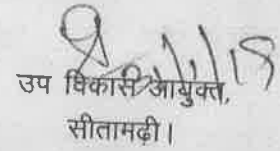 उप विकास आयुक्त,
सीतामढ़ी।